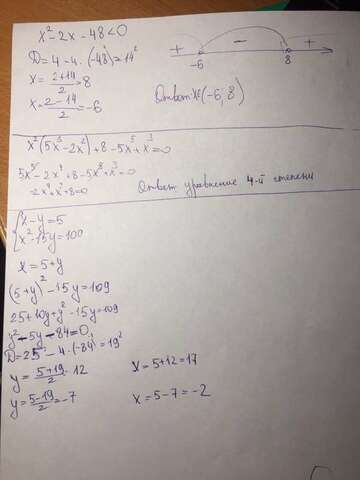 x²-2x-48<0
D=4-4·(-48)=14²
x=(2+14)/2=8
x=(2-14)/2=-6
+ - +
-6 8
Ответ: x∈(-6,8)
x²(5x³-2x²)+8-5x⁵+x³=0
5x⁵-2x⁴+8-5x⁵+x³=0
-2x⁴+x³+8=0
Ответ уравнение 4-й степени
{x-y=5
x²-15y=109
x=5+y
(5+y)²-15y=109
25+10y+y²-15y=109
y²-5y-84=0
D=25-4·(-84)=19²
y=(5+19)/2=12 x=5+12=17
y=(5-19)/2=-7 x=5-7=-2